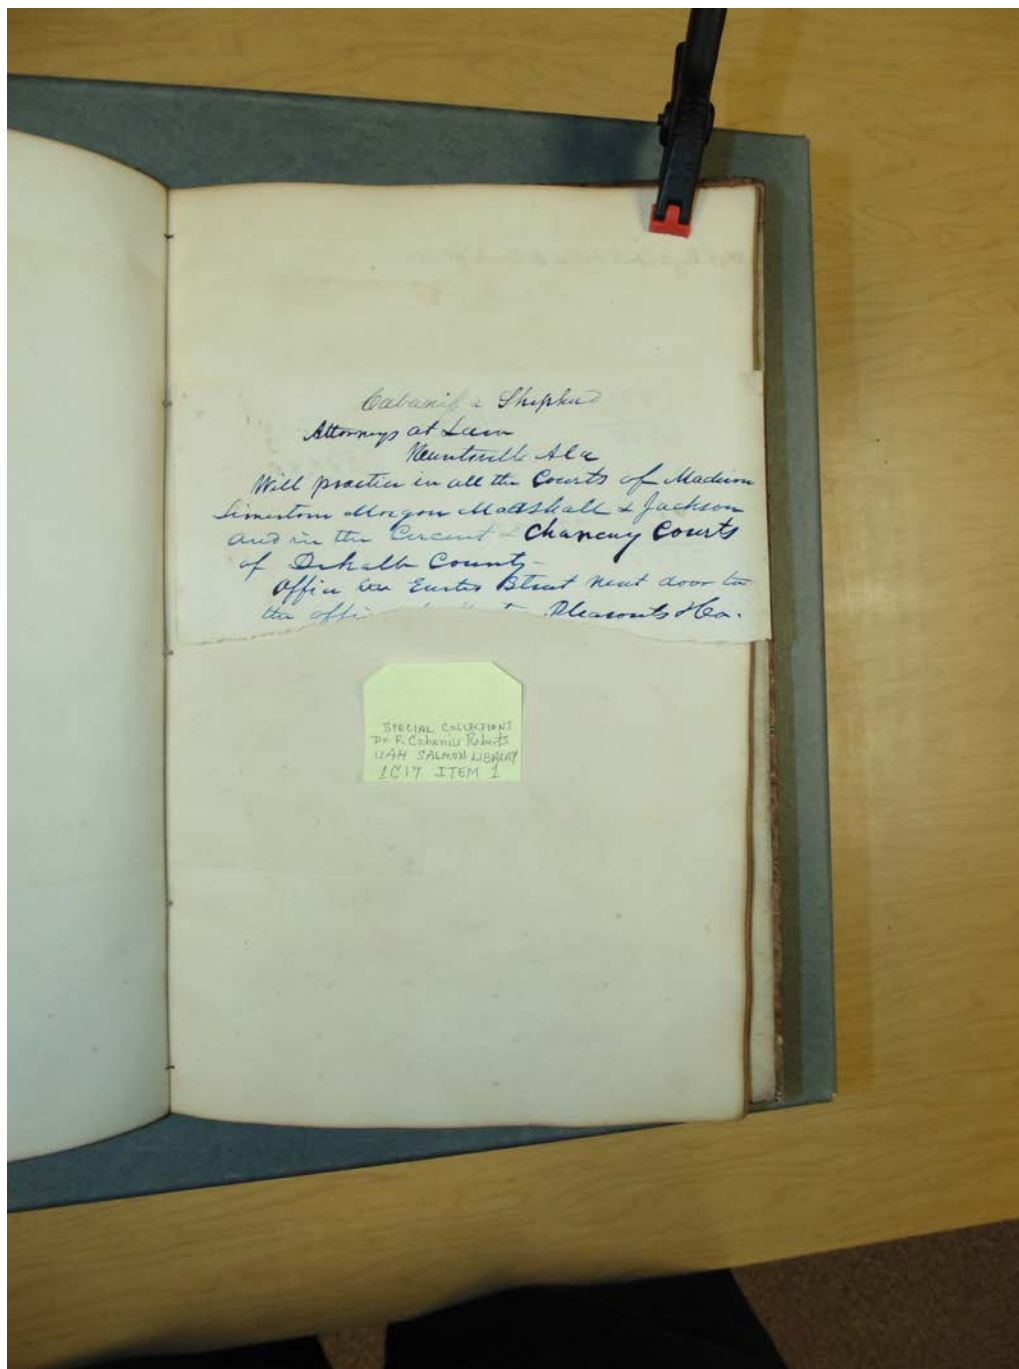 Cabaniss & Shepherd
Attorneys at Law
Huntsville Ala
Will practice in all the Courts of Madison
Limestone Morgan Marshall & Jackson
and in the Circuit & Chancery Courts
of Dekalb County
Office on Eustis Street next door to
the offi Pleasants & Co.
SPECIAL COLLECTIONS
Dr. F. Cabaniss Roberts
UAH SALMON LIBRARY
1C17 ITEM 1